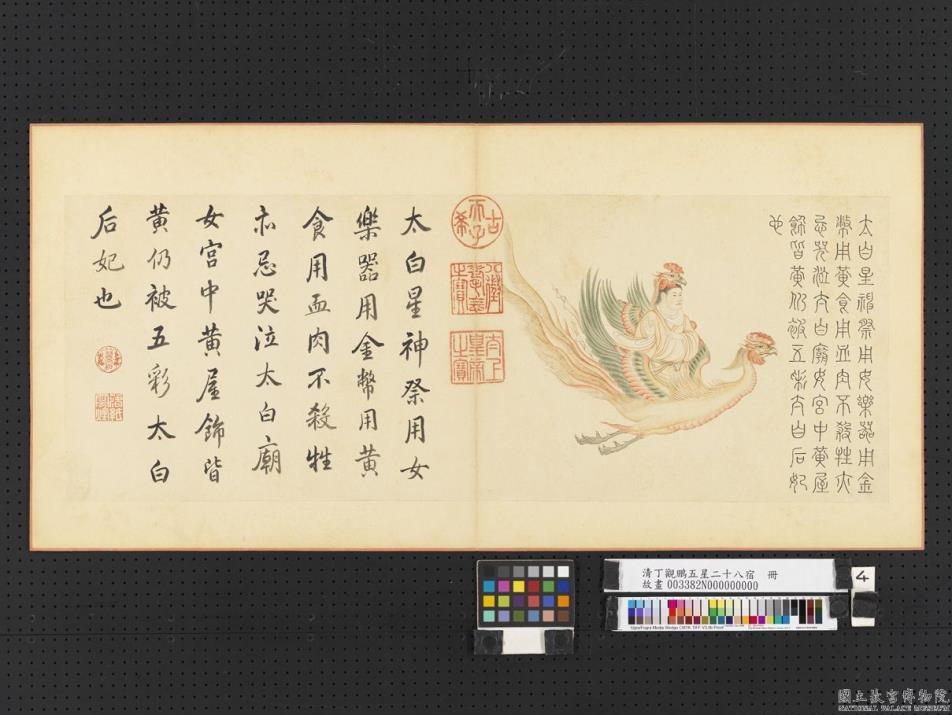 太白星神祭用女樂器用金
幣用黃食用血肉不殺牲亦
忌哭泣太白廟女宮中黃屋
飾皆黃仍被五彩太白后妃
也
古希天子
八徵耄念之寶
太上皇帝之寶
太白星神祭用女
樂器用金幣用黃
食用血肉不殺牲
亦忌哭泣太白廟
女宮中黃屋飾皆
黃仍被五彩太白
后妃也
清丁觀鵬五星二十八宿 冊
故畫 003382N000000000
4
國立故宮博物院
NATIONAL PALACE MUSEUM